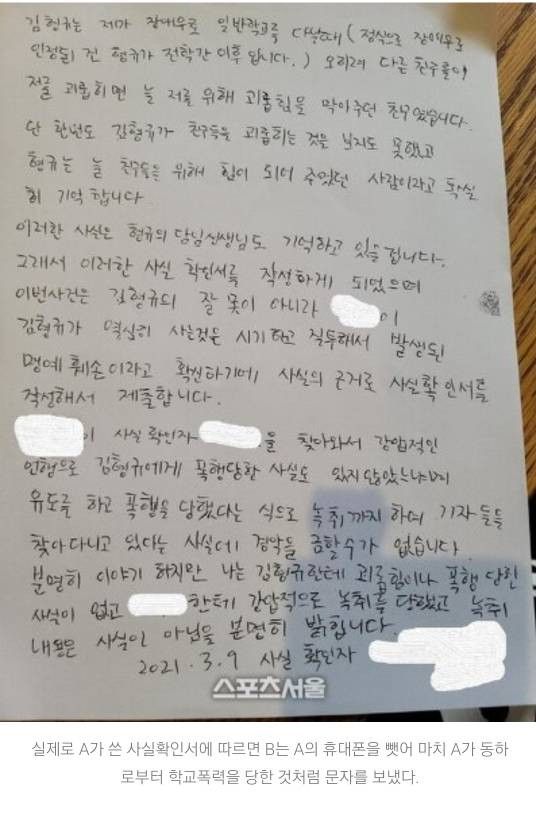 김형규는 제가 장애우로 일반학교를 다닐때 (정식으로 장애우로
인정된 건 형규가 전학간 이후 입니다.) 오히려 다른 친구들이
저를 괴롭히면 늘 저를 위해 괴롭힘을 막아주던 친구였습니다.
단 한번도 김형규가 친구들을 괴롭히는 것을 보지도 못했고
형규는 늘 친구들을 위해 힘이 되어 주었던 사람이라고 똑똑
히 기억합니다
이러한 사실은 형규의 담임선생님도 기억하고 있을 겁니다.
그래서 이러한 사실 확인서를 작성하게 되었으며
이번사건은 김형규의 잘 못이 아니라 이
김형규가 열심히 사는것을 시기하고 질투해서 발생된
명예훼손이라고 확신하기에 사실의 근거로 사실확인서를
작성해서 제출합니다.
이 사실 확인자 을 찾아와서 강압적인
언행으로 김형규에게 폭행당한 사실도 있지않았느냐며
유도를 하고 폭행을 당했다는 식으로 녹취까지 하며 기자들을
찾아다니고 있다는 사실에 경악을 금할수가 없습니다.
분명히 이야기 하지만 나는 김형규한테 괴롭힘이나 폭행 당한
사실이 없고 한테 강압적으로 녹취를 당했고 녹취
내용은 사실이 아님을 분명히 밝힙니다
2021. 3. 9 사실 확인자
스포츠서울
실제로 A가 쓴 사실확인서에 따르면 B는 A의 휴대폰을 뺏어 마치 A가 동하
로부터 학교폭력을 당한 것처럼 문자를 보냈다.